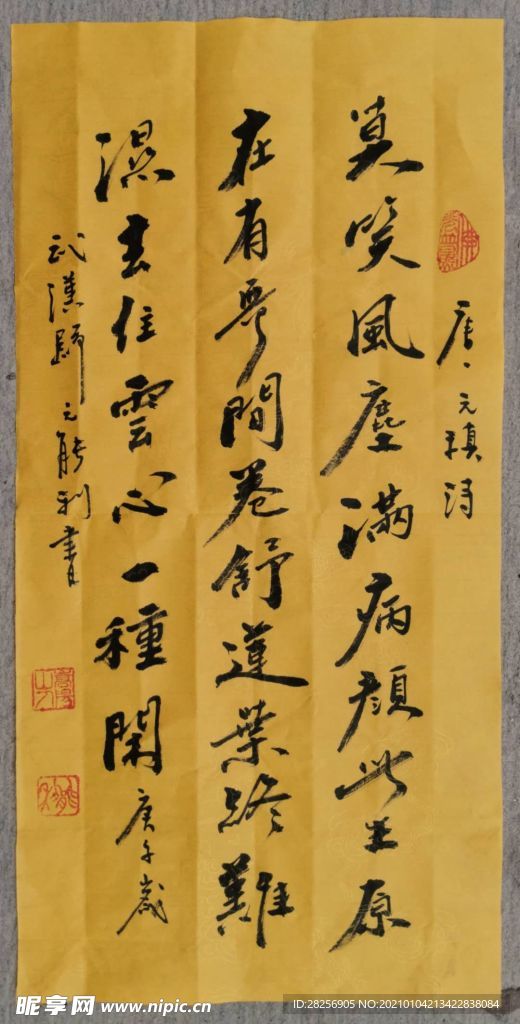 唐、元稹詩
莫笑風塵滿病顔此生原
在有無間卷舒蓮葉終難
濕去住雲心一種閑庚子歲
武漢歸元能利書
昵享网 www.nipic.cn
ID:28256905 NO:20210104213422838084